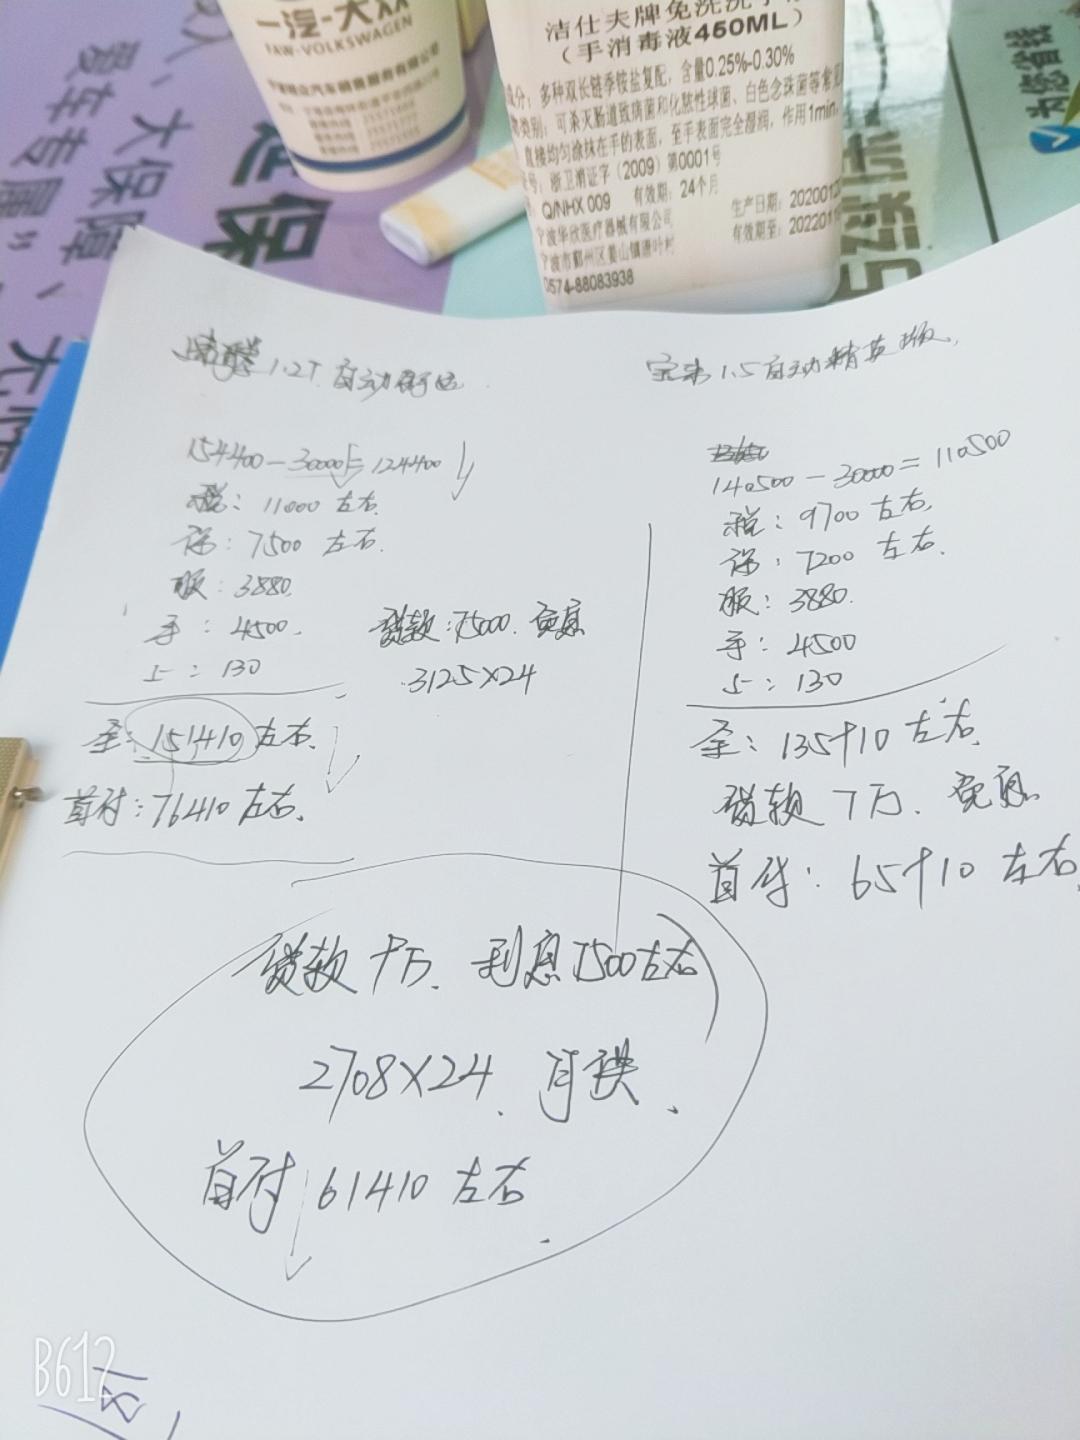 一汽-大众
FAW-VOLKSWAGEN
洁仕夫牌免洗洗手
(手消毒液450ML)
成分：多种双长链季铵盐复配，含量0.25%-0.30%
类别：可杀灭肠道致病菌和化脓性球菌、白色念珠菌等常见
直接均匀涂抹在手的表面，至手表面完全湿润，作用1min。
号：浙卫消证字（2009）第0001号
Q/NHX 009 有效期：24个月
生产日期：202001
有效期至：202201
宁波华欣医疗器械有限公司
宁波市鄞州区姜山镇唐叶村
0574-88083938
为您省钱
延保
大保障
爱车专属"
1.2T 自动舒适
154400-30000=124400
税：11000左右
保：7500 左右.
服：3880.
手：4500.
上：130
全：151410左右.
首付：76410左右.
贷款：75000. 免息
3125×24
宝来1.5自动精英版.
140500-30000=110500
税：9700左右.
保：7200 左右.
服：3880.
手：4500
上：130
全：135910左右.
贷款7万. 免息
首付：65910左右.
贷款 9万. 利息7500左右
2708×24. 月供.
首付 61410 左右.
B612